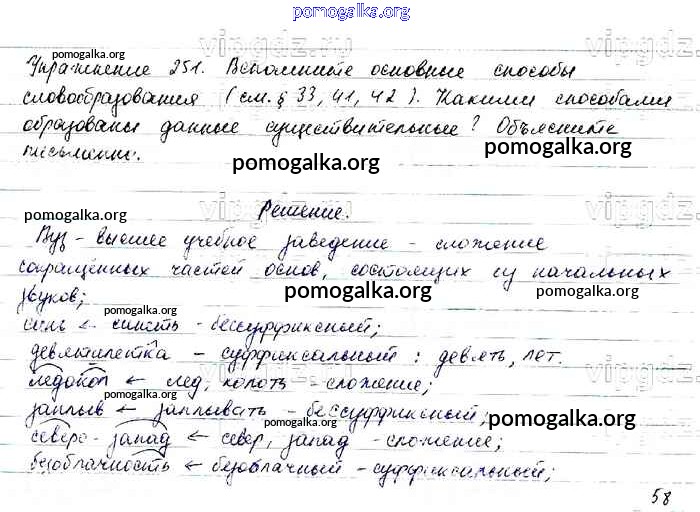 pomogalka.org
Упражнение 251. Вспомните основные способы
словообразования (см. § 33, 41, 42). Какими способами
образованы данные существительные? Объясните
письменно.
pomogalka.org
Решение.
Вуз - высшее учебное заведение - сложение
сокращённых частей основ, состоящих из начальных
звуков;
синь ← синеть - бессуффиксный;
девятилетка - суффиксальный: девять, лет.
ледокол ← лед, колоть - сложение;
заплыв ← заплывать - бессуффиксный;
северо-запад ← север, запад - сложение;
безоблачность ← безоблачный - суффиксальный;
58